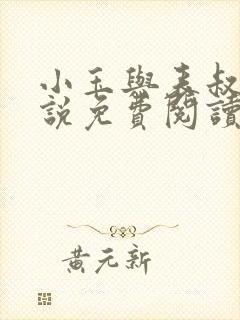 小玉與表叔
說免費閱讀
黃元新